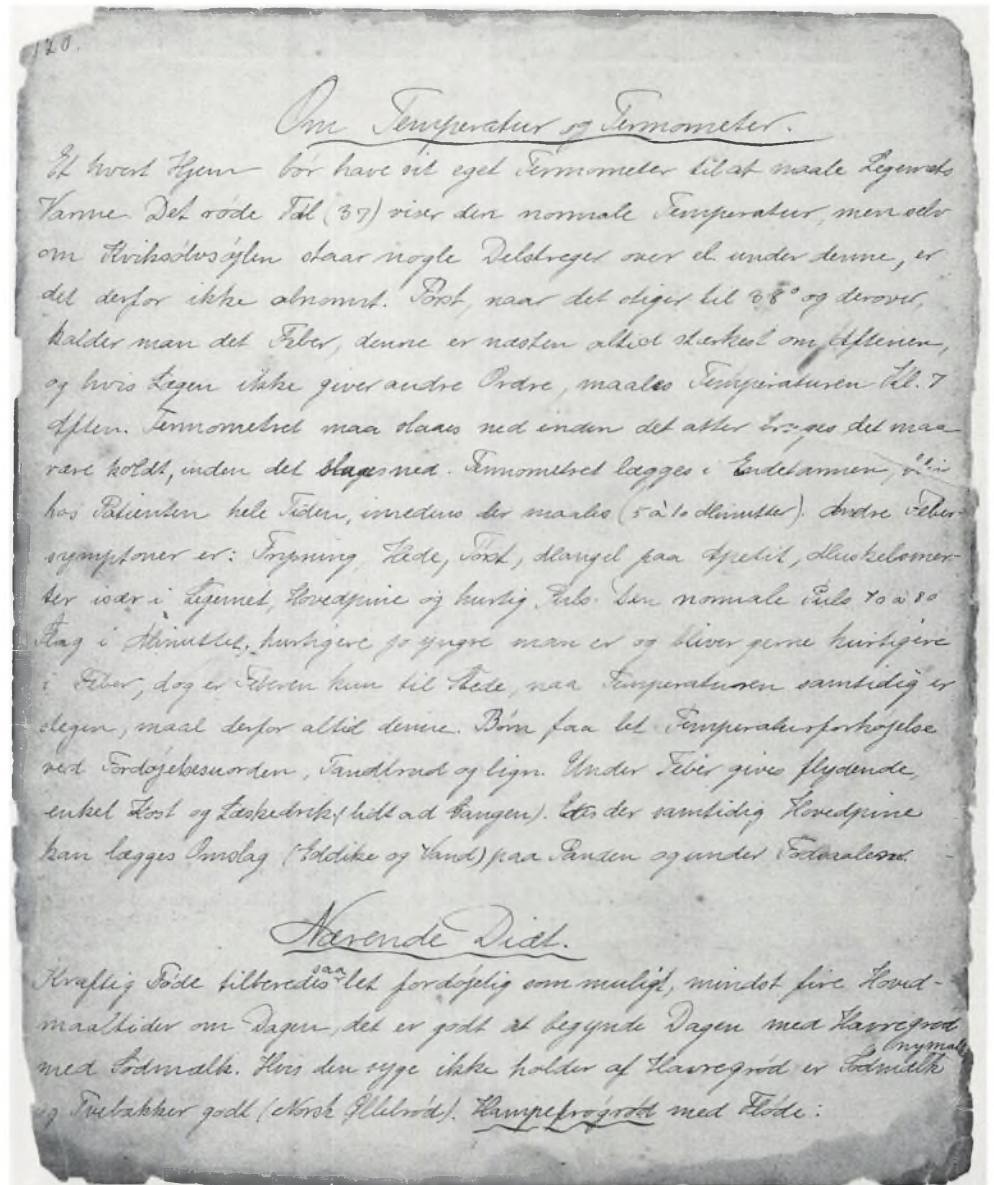 120.
Om Temperatur og Termometer.
Et hvert Hjem bør have sit eget Termometer til at maale Legemets
Varme. Det røde Tal (37) viser den normale Temperatur, men selv
om Kviksølvsøjlen staar nogle Delstreger over el. under denne, er
det derfor ikke abnormt. Først, naar det stiger til 38° og derover,
kalder man det Feber, denne er næsten altid stærkest om Aftenen,
og hvis Lægen ikke giver andre Ordre, maales Temperaturen Kl. 7
Aften. Termometret maa slaaes ned inden det atter bruges det maa
være koldt, inden det slaaes ned. Termometret lægges i Endetarmen,
hos Patienten hele Tiden, imedens der maales (5 à 10 Minutter). Andre Feber-
symptoner er: Frysning, Hede, Tørst, Mangel paa Apetit, Muskelsmer-
ter især i Legemet, Hovedpine og hurtig Puls. Den normale Puls 70 à 80
Slag i Minuttet, hurtigere jo yngre man er og bliver gerne hurtigere
i Feber, dog er Feberen kun til Stede, naa Temperaturen samtidig er
stegen, maal derfor altid denne. Børn faa let Temperaturforhøjelse
ved Fordøjelsesuorden, Tandbrud og lign. Under Feber gives flydende,
enkel Kost og Læskedrik (lidt ad Gangen). Er der samtidig Hovedpine
kan lægges Omslag (Eddike og Vand) paa Panden og under Fodsaalerne.
Nærende Diæt.
Kraftig Føde tilberedes saa let fordøjelig som muligt, mindst fire Hoved-
maaltider om Dagen, det er godt at begynde Dagen med Havregrød
med Sødmælk. Hvis den syge ikke holder af Havregrød er nymalk Sødmælk
og Tvebakker godt (Norsk Øllebrød). Hampefrøgrød med Fløde: